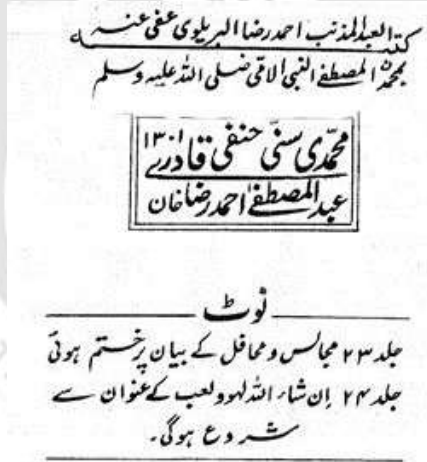 کتبہ العبد المذنب احمد رضا البریلوی عفی عنہ
بمحمدن المصطفٰے النبی الامّی صلی اللہ علیہ وسلم
محمّدی سنّی حنفی قادری ۱۳۰۱
عبد المصطفٰے احمد رضا خان
نوٹ
جلد ۲۳ مجالس و محافل کے بیان پر ختم ہوئی
جلد ۲۴ اِن شاء اللہ لہو و لعب کے عنوان سے
شروع ہوگی۔